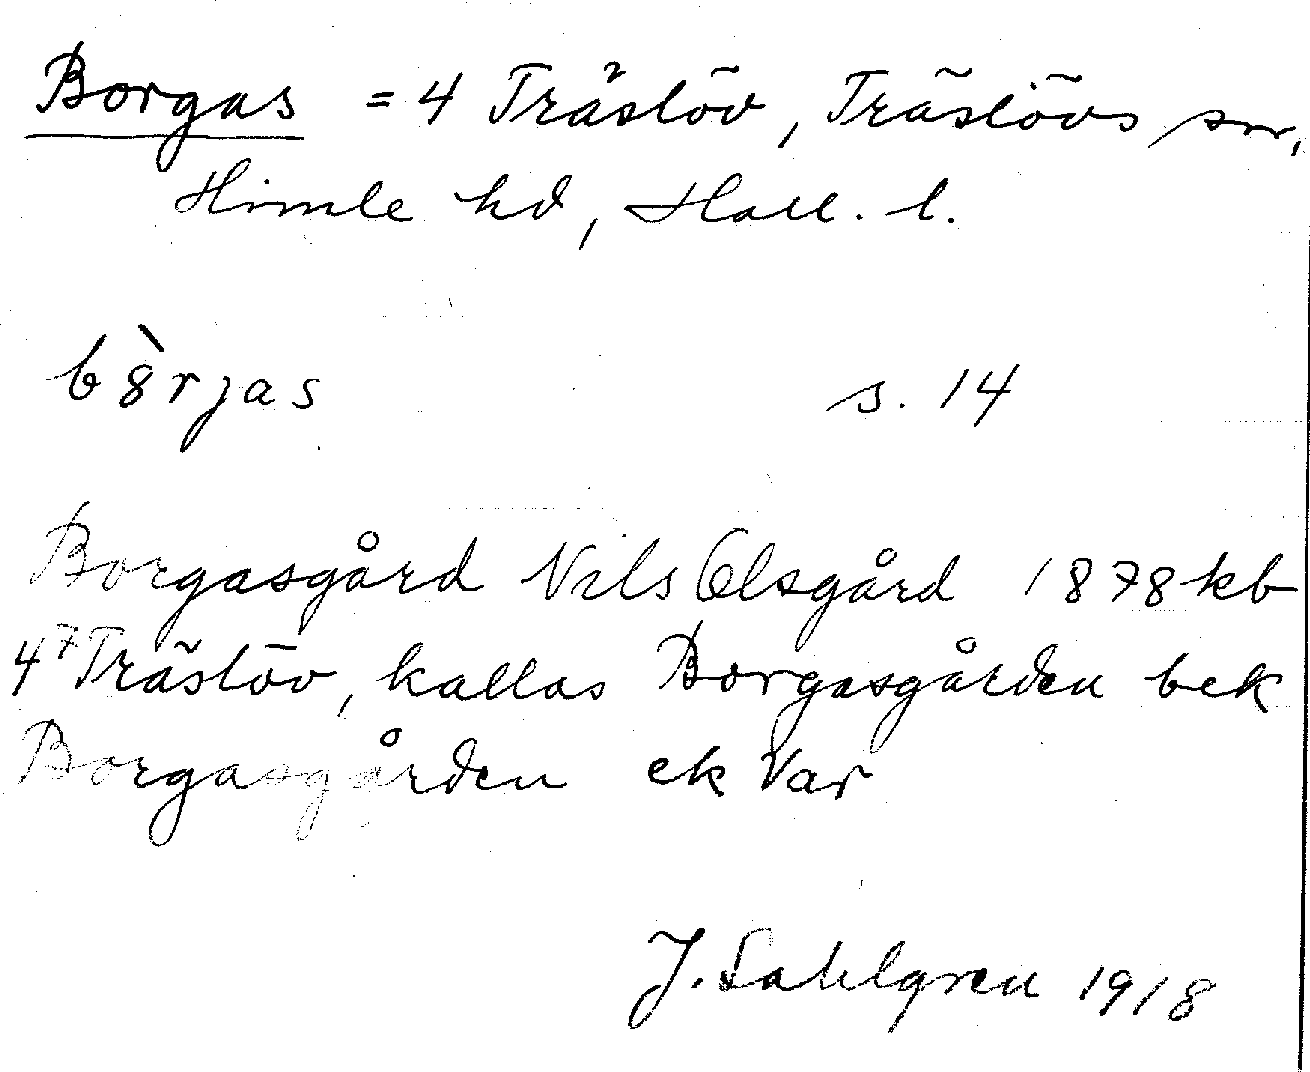 Borgas = 4 Träslöv, Träslövs sn,
Himle hd, Hall. l.
bèrjas s. 14
Borgasgård Nils Olsgård 1878 kb
4⁷ Träslöv, kallas Borgasgården bek
Borgasgården ek Var
J. Sahlgren 1918